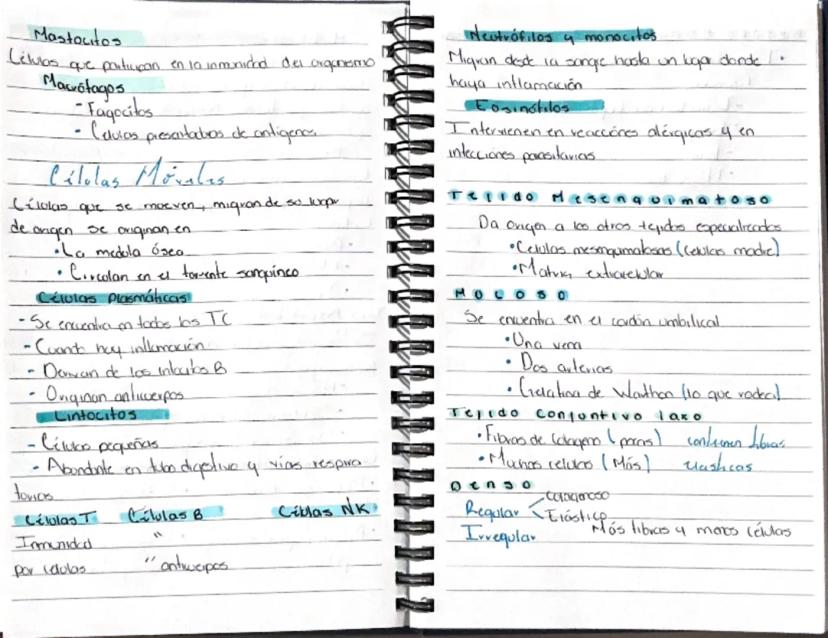 Mastocitos
Células que participan en la inmunidad del organismo
Macrófagos
- Fagocitos
- Celulas presentadoras de antigenos
Células Móviles
Células que se mueven, migran de su lugar
de origen se originan en
• La medula ósea
• Circulan en el torrente sanguíneo
Células Plasmáticas
- Se encuentra en todos los TC
- Cuanto hay inflamación
- Derivan de los linfocitos B
- Originan anticuerpos
Linfocitos
- Células pequeñas
- Abundante en tubo digestivo y vías respira
torias
Células T Células B Células NK
Inmunidad "
por células " anticuerpos
Neutrófilos y monocitos
Migran desde la sangre hasta un lugar donde
haya inflamación
Eosinófilos
Intervienen en reacciónes alérgicas y en
infecciones parasitarias
Tejido Mesenquimatoso
Da origen a los otros tejidos especializados
• Celulas mesenquimatosas (celulas madre)
• Matriz extracelular
Mucoso
Se encuentra en el cordón umbilical
• Una vena
• Dos arterias
• Gelatina de Warthon (lo que rodea)
Tejido Conjuntivo laxo
• Fibras de Colageno (pocas) contienen fibras
• Muchas celulas (Más) elasticas
Denso
Colagenoso
Regular Elástico
Irregular Más fibras y menos células